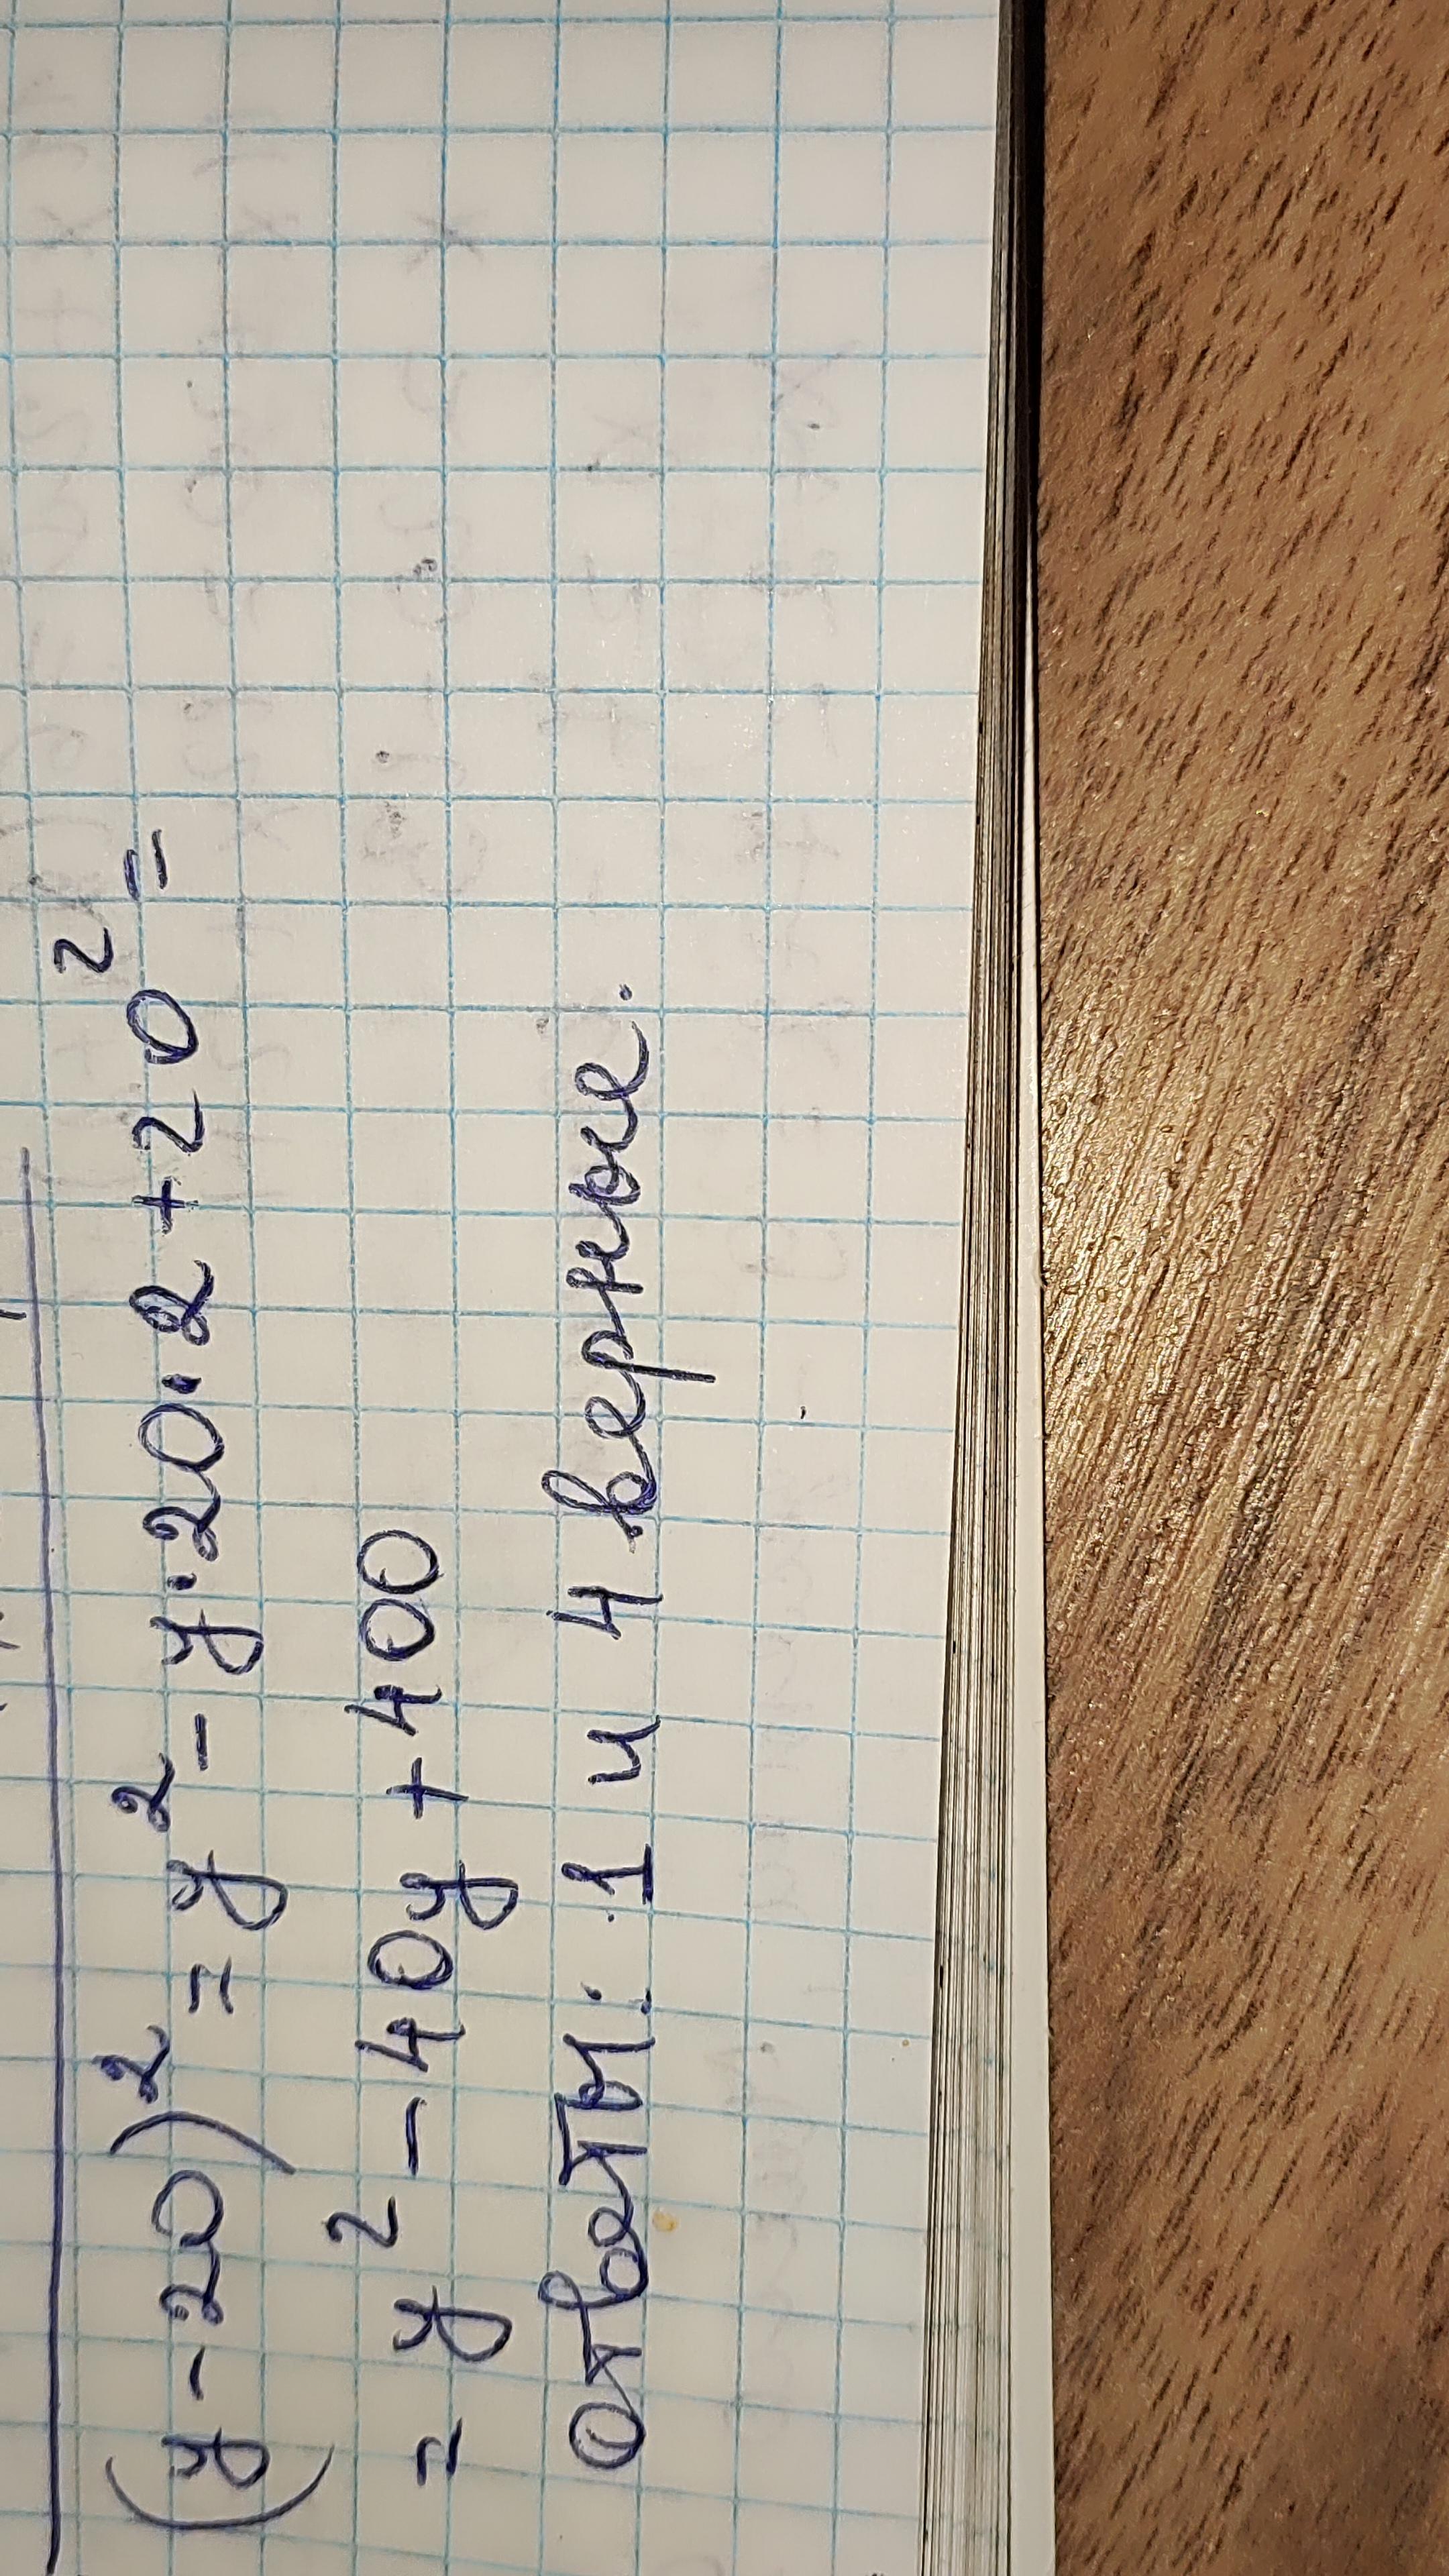 (y-20)² = y² - y·20·2 + 20² =
= y² - 40y + 400
ответы: 1 и 4 верные.